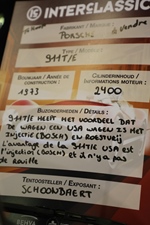 IS INTERCLASSICS
FABRIKANT / MARQUE:
à Vendre
PORSCHE
TYPE / MODÈLE:
911T/E
BOUWJAAR / ANNÉE DE CONSTRUCTION:
CILINDERINHOUD / INFORMATIONS MOTEUR:
1973
2400
BIJZONDERHEDEN / DETAILS:
911T/E HEEFT HET VOORDEEL DAT
DE WAGEN EEN USA WAGEN IS MET
INJECTIE (BOSCH) EN ROESTVRIJ
L'avantage de la 911T/E USA est
l'injection (BOSCH) et il n'y a pas
de rouille
TENTOOSTELLER / EXPOSANT:
SCHOONDAERT